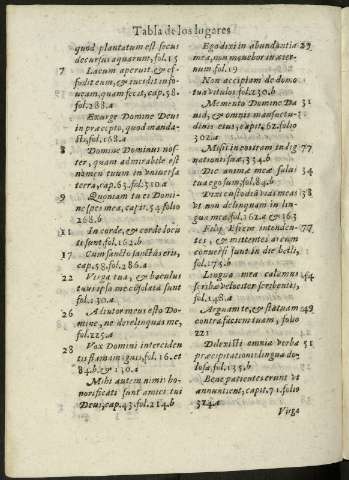 Tabla de los lugares
quod plantatum est secus
decursus aquarum, fol. 15
7 Lacum aperuit, & ef-
fodit eum, & incidit info-
ueam, quam fecit, cap. 58.
fol. 288. a
Exurge Domine Deus
in præcepto, quod manda-
sti, fol. 268. a
8 Domine Dominus nos-
ter, quam admirabile est
nomen tuum in vniuersa
terra, cap. 63. fol. 310. a
9 Quoniam tu es Domi-
ne spes mea, capit. 54. folio
268. b
11 In corde, & corde locu
ti sunt, fol. 162. b
17 Cum sancto sanctus eris,
cap. 58. fol. 286. a
22 Virga tua, & baculus
tuus ipsa me cõsolata sunt
fol. 130. a
26 Adiutor meus esto Do-
mine, ne derelinquas me,
fol. 225. a
28 Vox Domini interciden-
tis flammã ignis, fol. 16. et
84. b. & 130. a
Mihi autem nimis ho-
norificati sunt amici tui
Deus, cap. 43. fol. 214. b
Ego dixi in abundantia 29
mea, non mouebor in æter-
num. fol. 19
Non accipiam de domo
tua vitulos fol. 230. b
Memento Domine Da 31
uid, & omnis mansuetu-
dinis eius, capit. 62. folio
302. a
Misit in eos iram indig 77
nationis suæ, 334. b
Dic animæ meæ salus 34
tua ego sum, fol. 84. b
Dixi custodiã vias meas 38
vt non delinquam in lin-
gua mea, fol. 162. a & 163
Filij Effrem intenden- 77
tes, & mittentes arcum
conuersi sunt in die belli,
fol. 175. b
Lingua mea calamus 44
scribæ velociter scribentis,
fol. 148. a
Arguam te, & statuam 49
contra faciem tuam, folio
221
Dilexisti omnia verba 51
præcipitationis lingua do-
losa, fol. 135. b
Bene patientes erunt vt
annuncient, capit. 71. folio
324. a
Virga